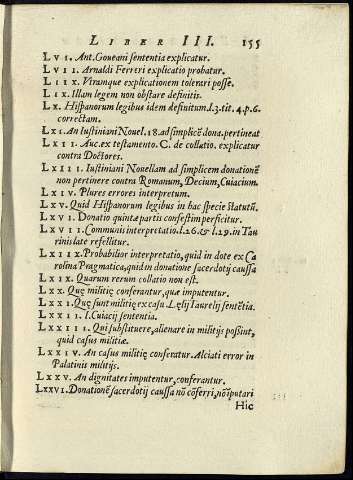 LIBER III. 155
LVI. Ant. Goueani sententia explicatur.
LVII. Arnaldi Ferreri explicatio probatur.
LVIII. Vtranque explicationem tolerari posse.
LIX. Illam legem non obstare definitis.
LX. Hispanorum legibus idem definitum. l.3. tit. 4. p. 6.
correctam.
LXI. An Iustiniani Nouel. 18. ad simplicē dona. pertineat
LXII. Auc. ex testamento. C. de collatio. explicatur
contra Doctores.
LXIII. Iustiniani Nouellam ad simplicem donationē
non pertinere contra Romanum, Decium, Cuiacium.
LXIV. Plures errores interpretum.
LXV. Quid Hispanorum legibus in hac specie statutū.
LXVI. Donatio quintæ partis confestim perficitur.
LXVII. Communis interpretatio. l. 26. & l. 29. in Tau
rinis late refellitur.
LXIIX. Probabilior interpretatio, quid in dote ex Ca
rolina Pragmatica, quid in donatione sacerdotij caussa
LXIX. Quarum rerum collatio non est.
LXX. Quę militię conferantur, quæ imputentur.
LXXI. Quę sunt militię ex casu. Lęlij Taurelij sentētia.
LXXII. I. Cuiacij sententia.
LXXIII. Qui substituere, alienare in militijs possint,
quid casus militiæ.
LXXIV. An casus militię conferatur. Alciati error in
Palatinis militijs.
LXXV. An dignitates imputentur, conferantur.
LXXVI. Donationē sacerdotij caussa nō cōferri, nō īputari
Hic